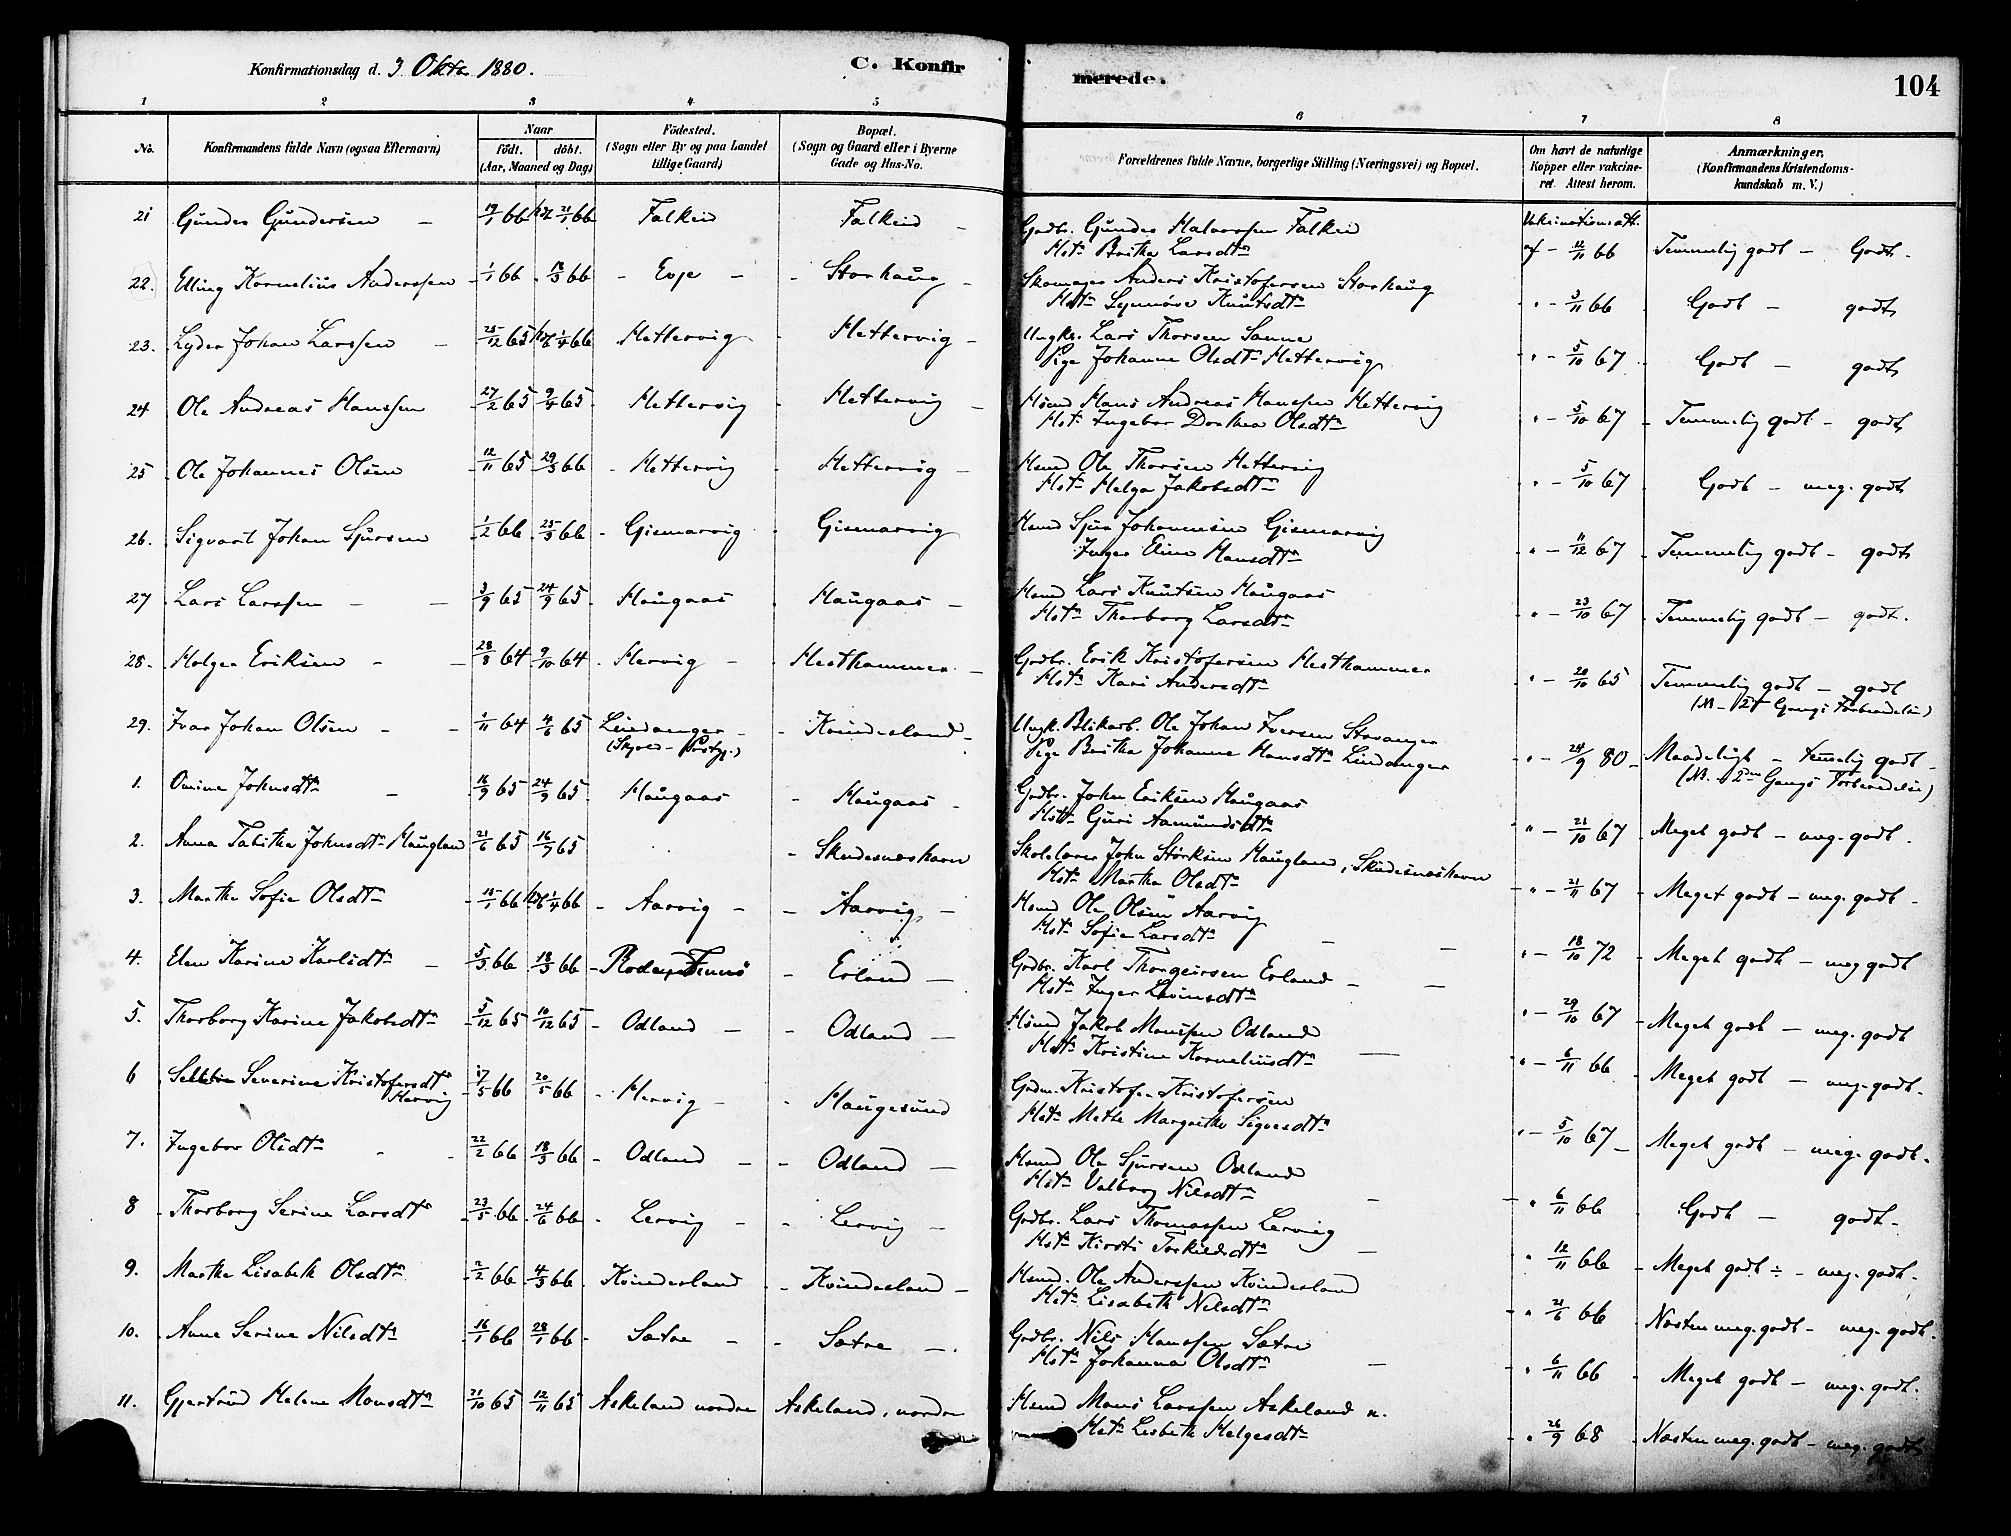 Konfirmationsdag d. 3 Oktr 1880.
C. Konfirmerede.
104
1 2 3 4 5 6 7 8
No. Konfirmandens fulde Navn (ogsaa Efternavn) Naar födt. döbt. (Aar, Maaned og Dag) Födested. (Sogn eller By og paa Landet tillige Gaard) Bopæl. (Sogn og Gaard eller i Byerne Gade og Hus-No. Forældrenes fulde Navne, borgerlige Stilling (Næringsvei) og Bopæl. Om havt de naturlige Kopper eller vakcineret. Attest herom. Anmærkninger. (Konfirmandens Kristendomskundskab m. V.)
21 Gunder Gundersen – 19/1 66 21/1 66 Falkeid Falkeid – Grdbr. Gunder Halvorsen Falkeid Vakcinationsatt.
Hst. Britha Larsdtr af – 12/11 66 Temmelig godt – Godt.
22. Elling Kornelius Anderssen 1/1 66 18/3 66 – Evje – – Storhaug – Skomager Anders Kristofersen Storhaug
Hst. Synnöve Knutsdtr " – 3/11 66 Godt – godt
23. Lyder Johan Larssen – 25/12 65 1/4 66 Hettervig Hettervig – Ungkr. Lars Thorsen Sanne
Pige Johanne Olsdtr Hettervig " – 5/10 67 Godt – godt
24 Ole Andreas Hanssen 27/2 65 9/4 65 Hettervig Hettervig – Hsmd Hans Andreas Hanssen Hettervig
Hst. Ingebor Dorthea Olsdtr " – 5/10 67 Temmelig godt – godt
25 Ole Johannes Olsen 12/11 65 29/3 66 – Hettervig Hettervig – Hsmd Ole Thorsen Hettervig
Hstr Helga Jakobsdtr " – 5/10 67 Godt – meg. godt
26. Sigvart Johan Sjursen 1/2 66 25/3 66 – Gismarvig Gismarvig Hsmd Sjur Johannesen Gismarvig
Inger Eline Hansdtr " – 11/12 67 Temmelig godt – godt
27 Lars Larssen – – 3/9 65 24/9 65 Haugaas Haugaas – Hsmd Lars Knutsen Haugaas
Hstr Thorborg Larsdtr " – 23/10 67 Temmelig godt – godt.
28. Holger Eriksen – – 28/8 64 9/10 64 Hervig – Hesthammer – Grdbr. Erik Kristofersen Hesthammer
Hstr Kari Andersdtr " – 20/10 65 Temmelig godt – godt
(NB – 2den Gangs Forberedelse)
29. Ivar Johan Olsen – – 1/11 64 4/6 65 Lindanger – Kvinnesland – Ungk. Blikarb. Ole Johan Iversen Stavanger
(Skjold – Prstgj.) Pige Britha Johanne Hansdtr Lindanger " – 24/9 80 – Maadeligt – temelig godt –
(NB – 2den Gangs Forberedelse)
1. Omine Johnsdtr – 16/9 65 24/9 65 Haugaas – Haugaas – Grdbr. John Eriksen Haugaas
Hstr Guri Aamundsdtr " – 21/10 67 Meget godt – meg. godt.
2. Anna Tabitha Johnsdtr Haugland 21/6 65 16/7 65 – Skudesneshavn Skolelærer John Störksen Haugland, Skudesneshavn
Hstr Martha Olsdtr – " – 21/11 67 Meget godt – meg. godt –
3. Marthe Sofie Olsdtr 15/1 66 1/4 66 – Aarvig – – Aarvig – Hsmd Ole Olsen Aarvig
Hstr Sofie Larsdtr – – " – 18/10 72 Meget godt – meg godt
4. Elen Karine Karlsdtr – 5/3 66 18/3 66 – Erland – Grdbr. Karl Thorgeirsen Erland – –
Hstr Inger Levinsdtr " – 29/10 67 Meget godt – meg. godt
5. Thorborg Karine Jakobsdtr 5/12 65 10/12 65 – Odland – – Odland – Hsmd Jakob Monssen Odland
Hstr Kristine Korneliusdtr – " – 6/11 66 Meget godt – meg. godt.
6 Severine Kristofersdtr 17/5 66 20/5 66 – Hervig – – Haugesund Grdm. Kristofer Kristofersen
Hervig Hstr Mette Margrethe Sigvesdtr " – 5/10 67 – Meget godt – meg. godt.
7. Ingebor Olsdtr – – 22/2 66 18/3 66 – Odland – – Odland – Hsmd Ole Sjursen Odland
Hstr Valborg Nilsdtr – – " 6/11 66 Godt – godt.
8 Thorborg Serine Larsdtr 23/5 66 24/6 66 – Lervig – – Lervig – Grdbr. Lars Thomassen Lervig
Hstr Kirsti Torkildsdtr – " 12/11 66 – Meget godt ÷ – meg. godt.
9. Marthe Lisabeth Olsdtr 2/2 66 4/3 66 Kvindesland – Kvindesland – Hsmd. Ole Anderssen Kvindesland
Hstr Lisabeth Nilsdtr – " 21/6 66 Næsten meg. godt – meg. godt.
10. Anne Serine Nilsdtr 16/1 66 28/1 66 – Sætre – – Sætre – Grdbr. Nils Hanssen Sætre
Hstr Johanna Olsdtr – " 6/11 66 Meget godt – meg. godt.
11. Gjertrud Helene Monsdtr 21/10 65 12/11 65 Askeland nordre Askeland, nordre Hsmd Mons Larssen Askeland n.
Hstr Lisbeth Helgesdtr – " 26/9 68 – Næsten meg. godt – meg. godt